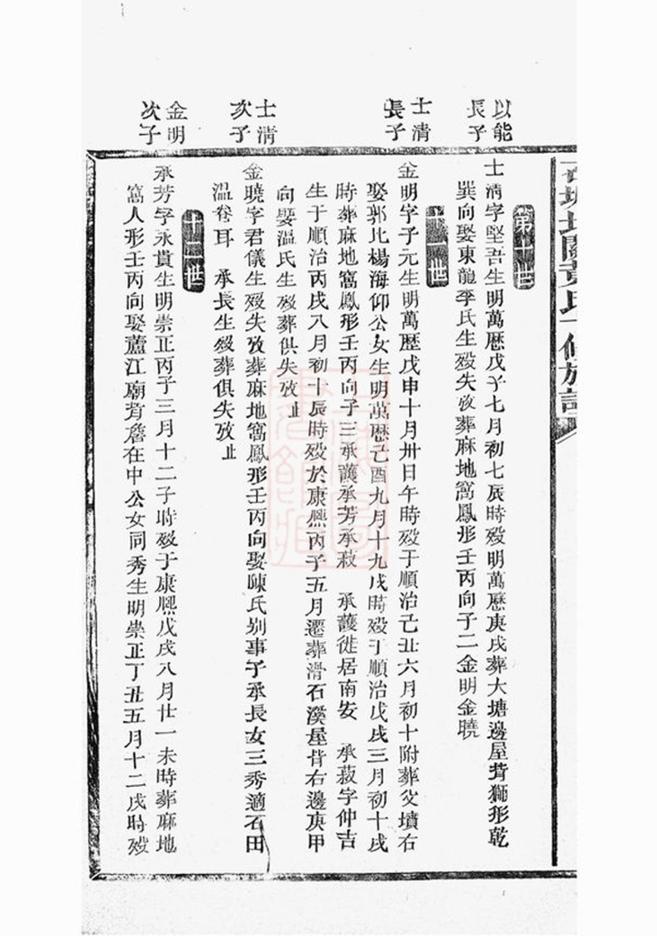 第十世
以能
長子
士清字堅吾生明萬歷戊子七月初七辰時殁明萬歷庚戌葬大塘邊屋背獅形乾
巽向娶東龍李氏生殁失攷葬麻地窩鳳形壬丙向子二金明金曉
十一世
士清
長子
金明字子元生明萬歷戊申十月卅日午時殁于順治己丑六月初十附葬父墳右
娶郭北楊海仰公女生明萬歷己酉九月十九戌時殁于順治戊戌三月初十戌
時葬麻地窩鳳形壬丙向子三承護承芳承菽 承護徙居南安 承菽字仲吉
生于順治丙戌八月初十辰時殁於康熈丙子五月遷葬滑石漢屋背右邊庚甲
向娶溫氏生殁葬俱失攷止
士清
次子
金曉字君儀生殁失攷葬麻地窩鳳形壬丙向娶陳氏別事子承長女三秀適石田
溫卷耳 承長生殁葬俱失攷止
十二世
金明
次子
承芳字永貴生明崇正丙子三月十二子時殁于康熈戊戌八月廿一未時葬麻地
窩人形壬丙向娶蘆江廟背詹在中公女同秀生明崇正丁丑五月十二戌時殁